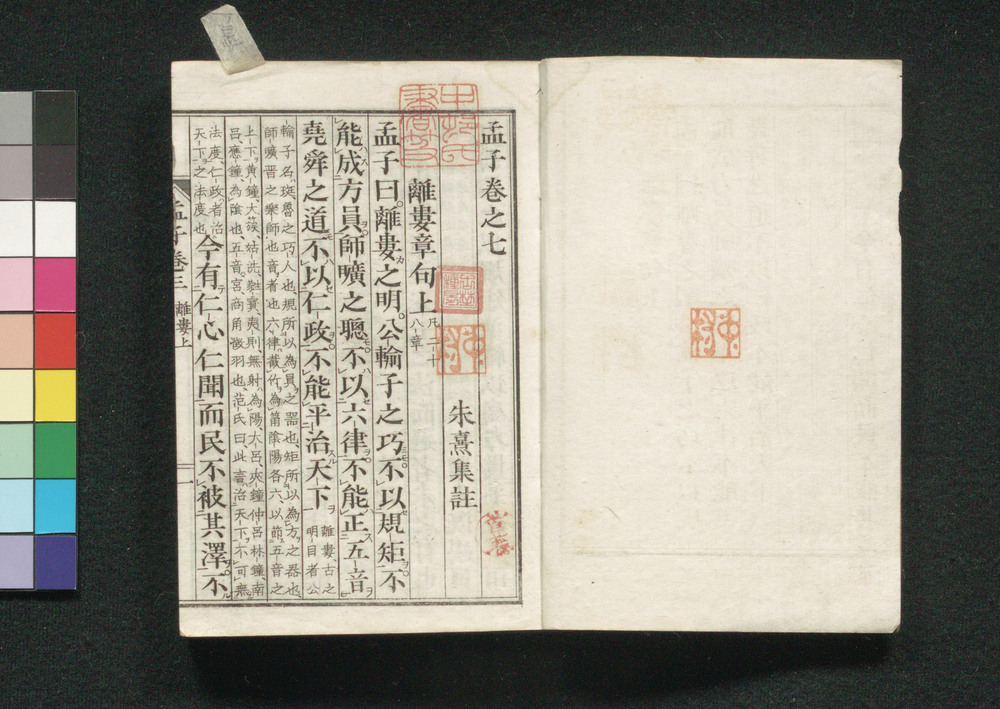 孟子卷之七
離婁章句上凡二十八章
朱熹集註
孟子曰離婁之明公輸子之巧不以規矩不
能成方員師曠之聰不以六律不能正五音
堯舜之道不以仁政不能平治天下離婁古之明目者公
輸子名班魯之巧人也規所以為員之器也矩所以為方之器也
師曠晋之樂師也音者也六律截竹為筩陰陽各六以節五音之
上下黄鐘大蔟姑洗蕤賓夷則無射為陽大呂夾鐘仲呂林鐘南
呂應鐘為陰也五音宮商角徵羽也范氏曰此言治天下不可無
法度仁政者治天下之法度也今有仁心仁聞而民不被其澤不
孟子卷三
離婁上
一